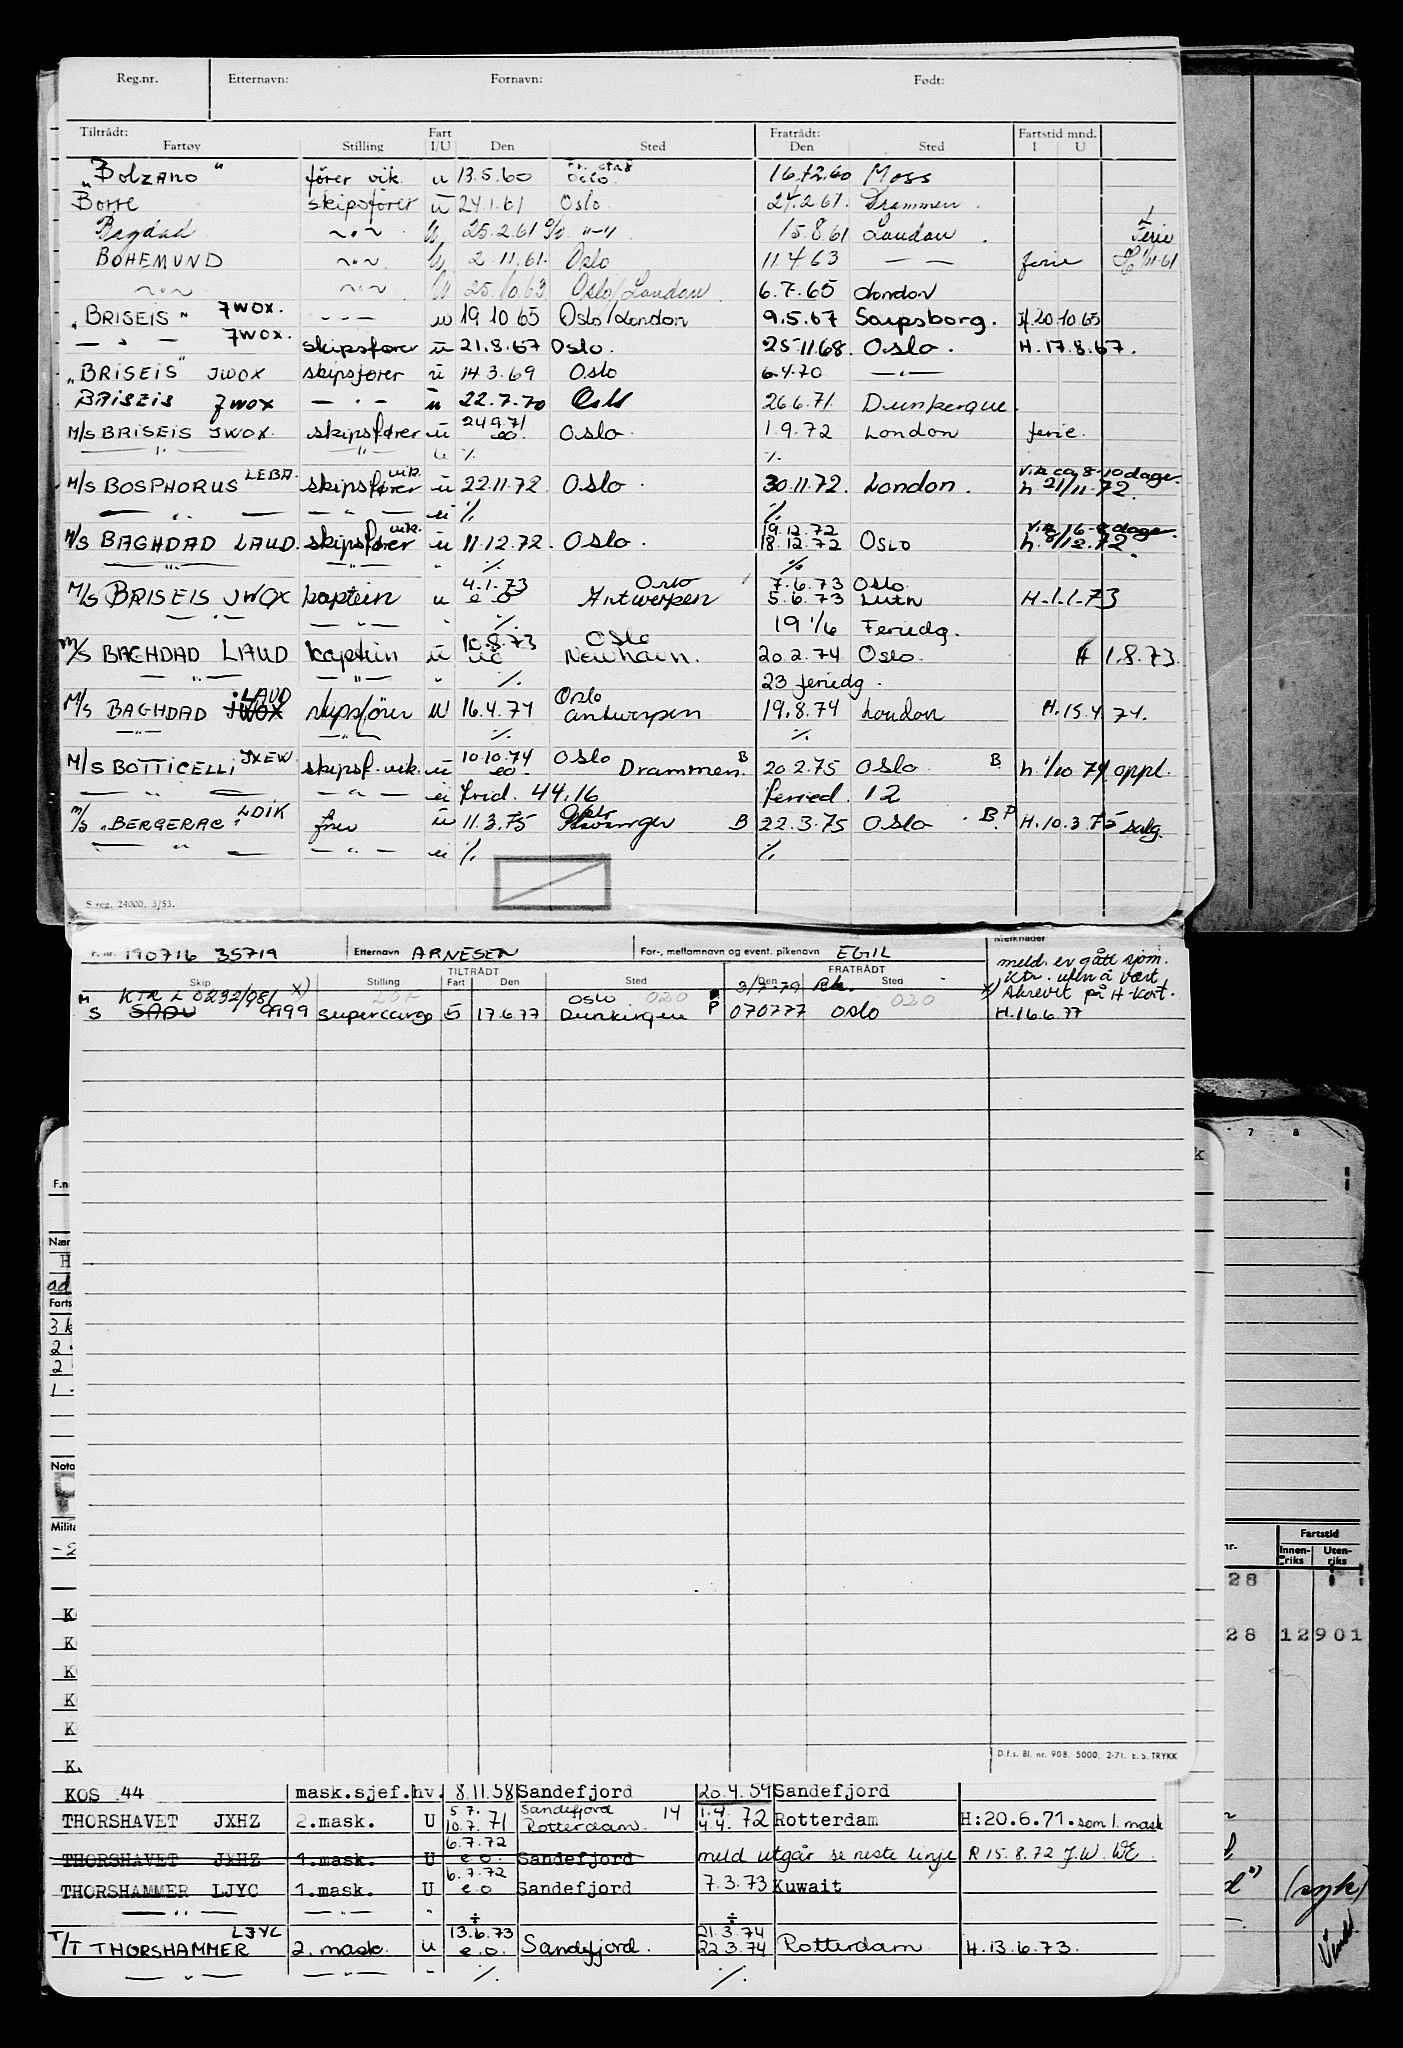 Reg.nr. Etternavn: Fornavn: Født:
Tiltrådt: Fratrådt: Fartstid mnd.
Fartøy Stilling Fart I/U Den Sted Den Sted I U
"Bolzano" fører vik. u 13.5.60 Oslo. 16.12.60 Moss
Borre skipsfører u 24.1.61 Oslo 24.2.61. Drammen.
Bagdad -"- u 25.2.61 % -"- 15.8.61 London. Ferie
BOHEMUND -"- u 2.11.61. Oslo 11.4.63 — — ferie 1/11.61
-"- -"- u 25.10.63 Oslo/London 6.7.65 London
"BRISEIS" JWOX. - - - u 19 10 65 Oslo/London 9.5.67 Sarpsborg. H. 20 10 65
— " — JWOX. skipsfører u 21.8.67 Oslo. 25.11.68. Oslo. H. 17.8.67.
"BRISEIS" JWOX skipsfører u 14.3.69 Oslo 6.4.70 —"—
BRISEIS JWOX — " — u 22.7.70 Oslo 26.6.71. Dunkerque.
M/S BRISEIS JWOX. skipsfører u 24.9.71 eo Oslo. 1.9.72 London ferie.
— " — — " — u % %
M/S BOSPHORUS LEBA. skipsfører vik. u 22.11.72. Oslo. 30.11.72. London. vik ca 8-10 dager. h. 21/11.72.
— " — — " — u % %
M/S BAGHDAD LAUD. skipsfører vik. u 11.12.72. Oslo. 19.12.72 18.12.72 OSLO h. 8/12.72.
— " — — " — " % %
M/S BRISEIS JWOX kaptein u 4.1.73 e o Oslo Antwerpen 7.6.73 5.6.73 Oslo H.1.1.73
— " — — " — " % 19 1/6 Feriedg.
M/S BAGHDAD LAUD kaptein u 10.8.73 Oslo 20.2.74 Oslo. H 1.8.73.
— " — — " — " % 23 feriedg.
M/S BAGHDAD LAUD JWOX skipsfører u 16.4.74 Oslo Antwerpen 19.8.74 London H.15.4 74.
— " — — " — % %
M/S BOTTICELLI JXEW. skipsf. vik. u 10.10.74 eo. Oslo Drammen. B 20.2.75 Oslo B. h. 1/10 74 oppl.
— " — — " — u frid. 44.16 feried. 12
M/S "BERGERAC" LDIK fører u 11.3.75 Oslo Stavanger B 22.3.75 Oslo. B.P H.10.3.75 salg.
— " — — " — u % %
S reg. 24000. 3/53.
F.nr. 190716 35719 Etternavn ARNESEN For-, mellomnavn og event. pikenavn EGIL Merknader
TILTRÅDT FRATRÅDT meld. er gått sjøm.
Skip Stilling Fart Den Sted Den Sted ktr. uten å vært
M KTR L 0232/981 x) Oslo 020 3/7-79 Rk. 020 x) skrevet på H-kort.
S SADU 9999 supercargo 5 17.6.77 Dunkirque P 070777 OSLO H.16.6.77
7 8
k
F.n
Nær
H
ad
Farts
3 k
2
2
1
Nota
Milita
K
K
K
K
K
K.
nr. Fartstid
Innen-riks Uten-riks
28
28 12901
D.f.s. Bl. nr. 908. 5000. 2-71. E. S. TRYKK
KOS 44 mask.sjef. hv. 8.11.58 Sandefjord 20.4.59 Sandefjord
THORSHAVET JXHZ 2.mask. U 5.7. 10.7.71 Sandefjord Rotterdam. 14 1.4. 4.4.72 Rotterdam H:20.6.71. som 1. mask
THORSHAVET JXHZ 1.mask. U 6.7.72 e.o. Sandefjord meld utgår se neste linje R 15.8.72 J.W. WE.
THORSHAMMER LJYC 1.mask. U 6.7.72 e.o Sandefjord 7.3.73 Kuwait
— " — — " — " ÷ ÷
T/T THORSHAMMER LJYC 2. mask. u 13.6.73 e.o. Sandefjord. 21.3.74 22.3.74 Rotterdam H.13.6.73.
— " — — " — " % %
(syk)